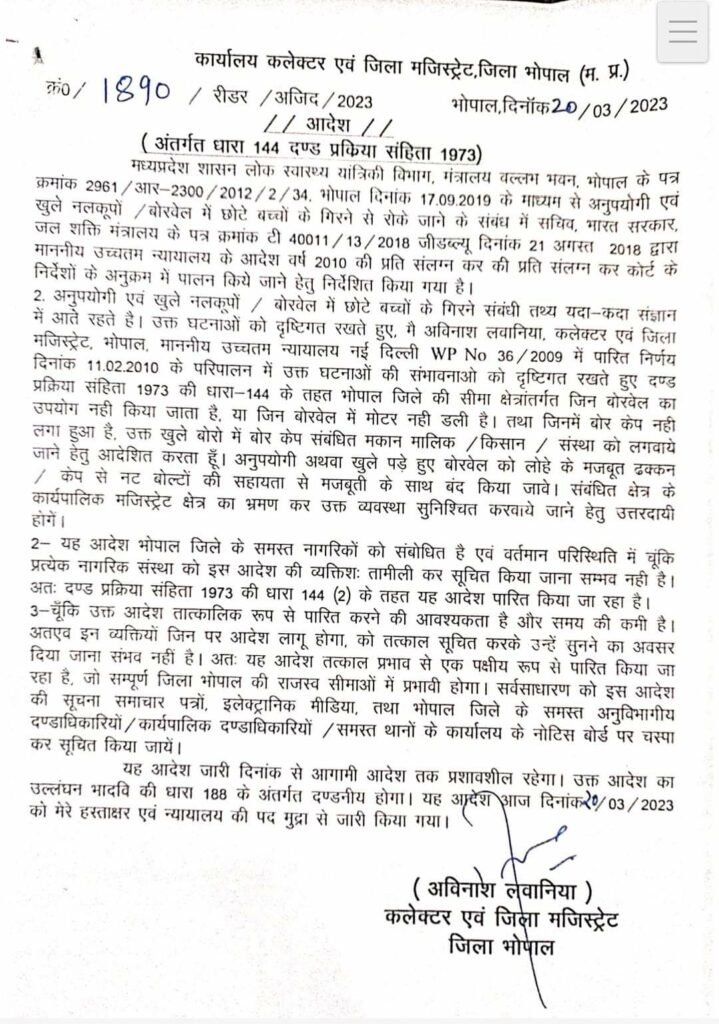 कार्यालय कलेक्टर एवं जिला मजिस्ट्रेट,जिला भोपाल (म. प्र.)
क्रं0/ 1890 / रीडर /अजिद/2023 भोपाल,दिनॉक20/03/2023
// आदेश //
( अंतर्गत धारा 144 दण्ड प्रक्रिया संहिता 1973)
मध्यप्रदेश शासन लोक स्वास्थ्य यांत्रिकी विभाग, मंत्रालय वल्लभ भवन, भोपाल के पत्र
क्रमांक 2961/आर-2300/2012/2/34, भोपाल दिनांक 17.09.2019 के माध्यम से अनुपयोगी एवं
खुले नलकूपों /बोरवेल में छोटे बच्चों के गिरने से रोके जाने के संबंध में सचिव, भारत सरकार,
जल शक्ति मंत्रालय के पत्र क्रमांक टी 40011/13/2018 जीडब्ल्यू दिनांक 21 अगस्त 2018 द्वारा
माननीय उच्चतम न्यायालय के आदेश वर्ष 2010 की प्रति संलग्न कर की प्रति संलग्न कर कोर्ट के
निर्देशों के अनुक्रम में पालन किये जाने हेतु निर्देशित किया गया है।
2. अनुपयोगी एवं खुले नलकूपों / बोरवेल में छोटे बच्चों के गिरने संबंधी तथ्य यदा-कदा संज्ञान
में आते रहते है। उक्त घटनाओं को दृष्टिगत रखते हुए, मै अविनाश लवानिया, कलेक्टर एवं जिला
मजिस्ट्रेट, भोपाल, माननीय उच्चतम न्यायालय नई दिल्ली WP No 36/2009 में पारित निर्णय
दिनांक 11.02.2010 के परिपालन में उक्त घटनाओं की संभावनाओ को दृष्टिगत रखते हुए दण्ड
प्रक्रिया संहिता 1973 की धारा-144 के तहत भोपाल जिले की सीमा क्षेत्रांतर्गत जिन बोरवेल का
उपयोग नही किया जाता है, या जिन बोरवेल में मोटर नही डली है। तथा जिनमें बोर केप नही
लगा हुआ है, उक्त खुले बोरो में बोर केप संबंधित मकान मालिक /किसान / संस्था को लगवाये
जाने हेतु आदेशित करता हूँ। अनुपयोगी अथवा खुले पड़े हुए बोरवेल को लोहे के मजबूत ढक्कन
/ केप से नट बोल्टों की सहायता से मजबूती के साथ बंद किया जावे। संबंधित क्षेत्र के
कार्यपालिक मजिस्ट्रेट क्षेत्र का भ्रमण कर उक्त व्यवस्था सुनिश्चित करवाये जाने हेतु उत्तरदायी
होगें।
2- यह आदेश भोपाल जिले के समस्त नागरिकों को संबोधित है एवं वर्तमान परिस्थिति में चूंकि
प्रत्येक नागरिक संस्था को इस आदेश की व्यक्तिशः तामीली कर सूचित किया जाना सम्भव नही है।
अतः दण्ड प्रक्रिया संहिता 1973 की धारा 144 (2) के तहत यह आदेश पारित किया जा रहा है।
3-चूँकि उक्त आदेश तात्कालिक रूप से पारित करने की आवश्यकता है और समय की कमी है।
अतएव इन व्यक्तियों जिन पर आदेश लागू होगा, को तत्काल सूचित करके उन्हें सुनने का अवसर
दिया जाना संभव नहीं है। अतः यह आदेश तत्काल प्रभाव से एक पक्षीय रूप से पारित किया जा
रहा है, जो सम्पूर्ण जिला भोपाल की राजस्व सीमाओं में प्रभावी होगा। सर्वसाधारण को इस आदेश
की सूचना समाचार पत्रों, इलेक्ट्रानिक मीडिया, तथा भोपाल जिले के समस्त अनुविभागीय
दण्डाधिकारियों/कार्यपालिक दण्डाधिकारियों /समस्त थानों के कार्यालय के नोटिस बोर्ड पर चस्पा
कर सूचित किया जायें।
यह आदेश जारी दिनांक से आगामी आदेश तक प्रशावशील रहेगा। उक्त आदेश का
उल्लंघन भादवि की धारा 188 के अंतर्गत दण्डनीय होगा। यह आदेश आज दिनांक20/03/2023
को मेरे हस्ताक्षर एवं न्यायालय की पद मुद्रा से जारी किया गया।
( अविनाश लवानिया )
कलेक्टर एवं जिला मजिस्ट्रेट
जिला भोपाल